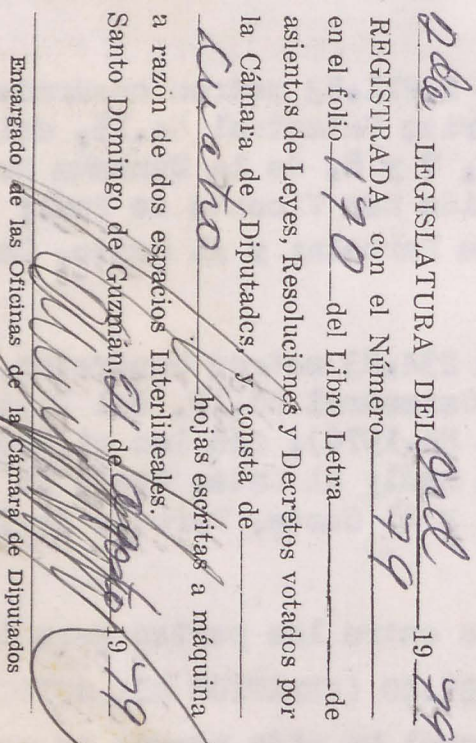 2da LEGISLATURA DEL Ord 19 79
REGISTRADA con el Número 79
en el folio 170 del Libro Letra de
asientos de Leyes, Resoluciones y Decretos votados por
la Cámara de Diputados, y consta de
Cuatro hojas escritas a máquina
a razón de dos espacios Interlineales.
Santo Domingo de Guzmán, 21 de agosto 19 79
Encargado de las Oficinas de la Cámara de Diputados